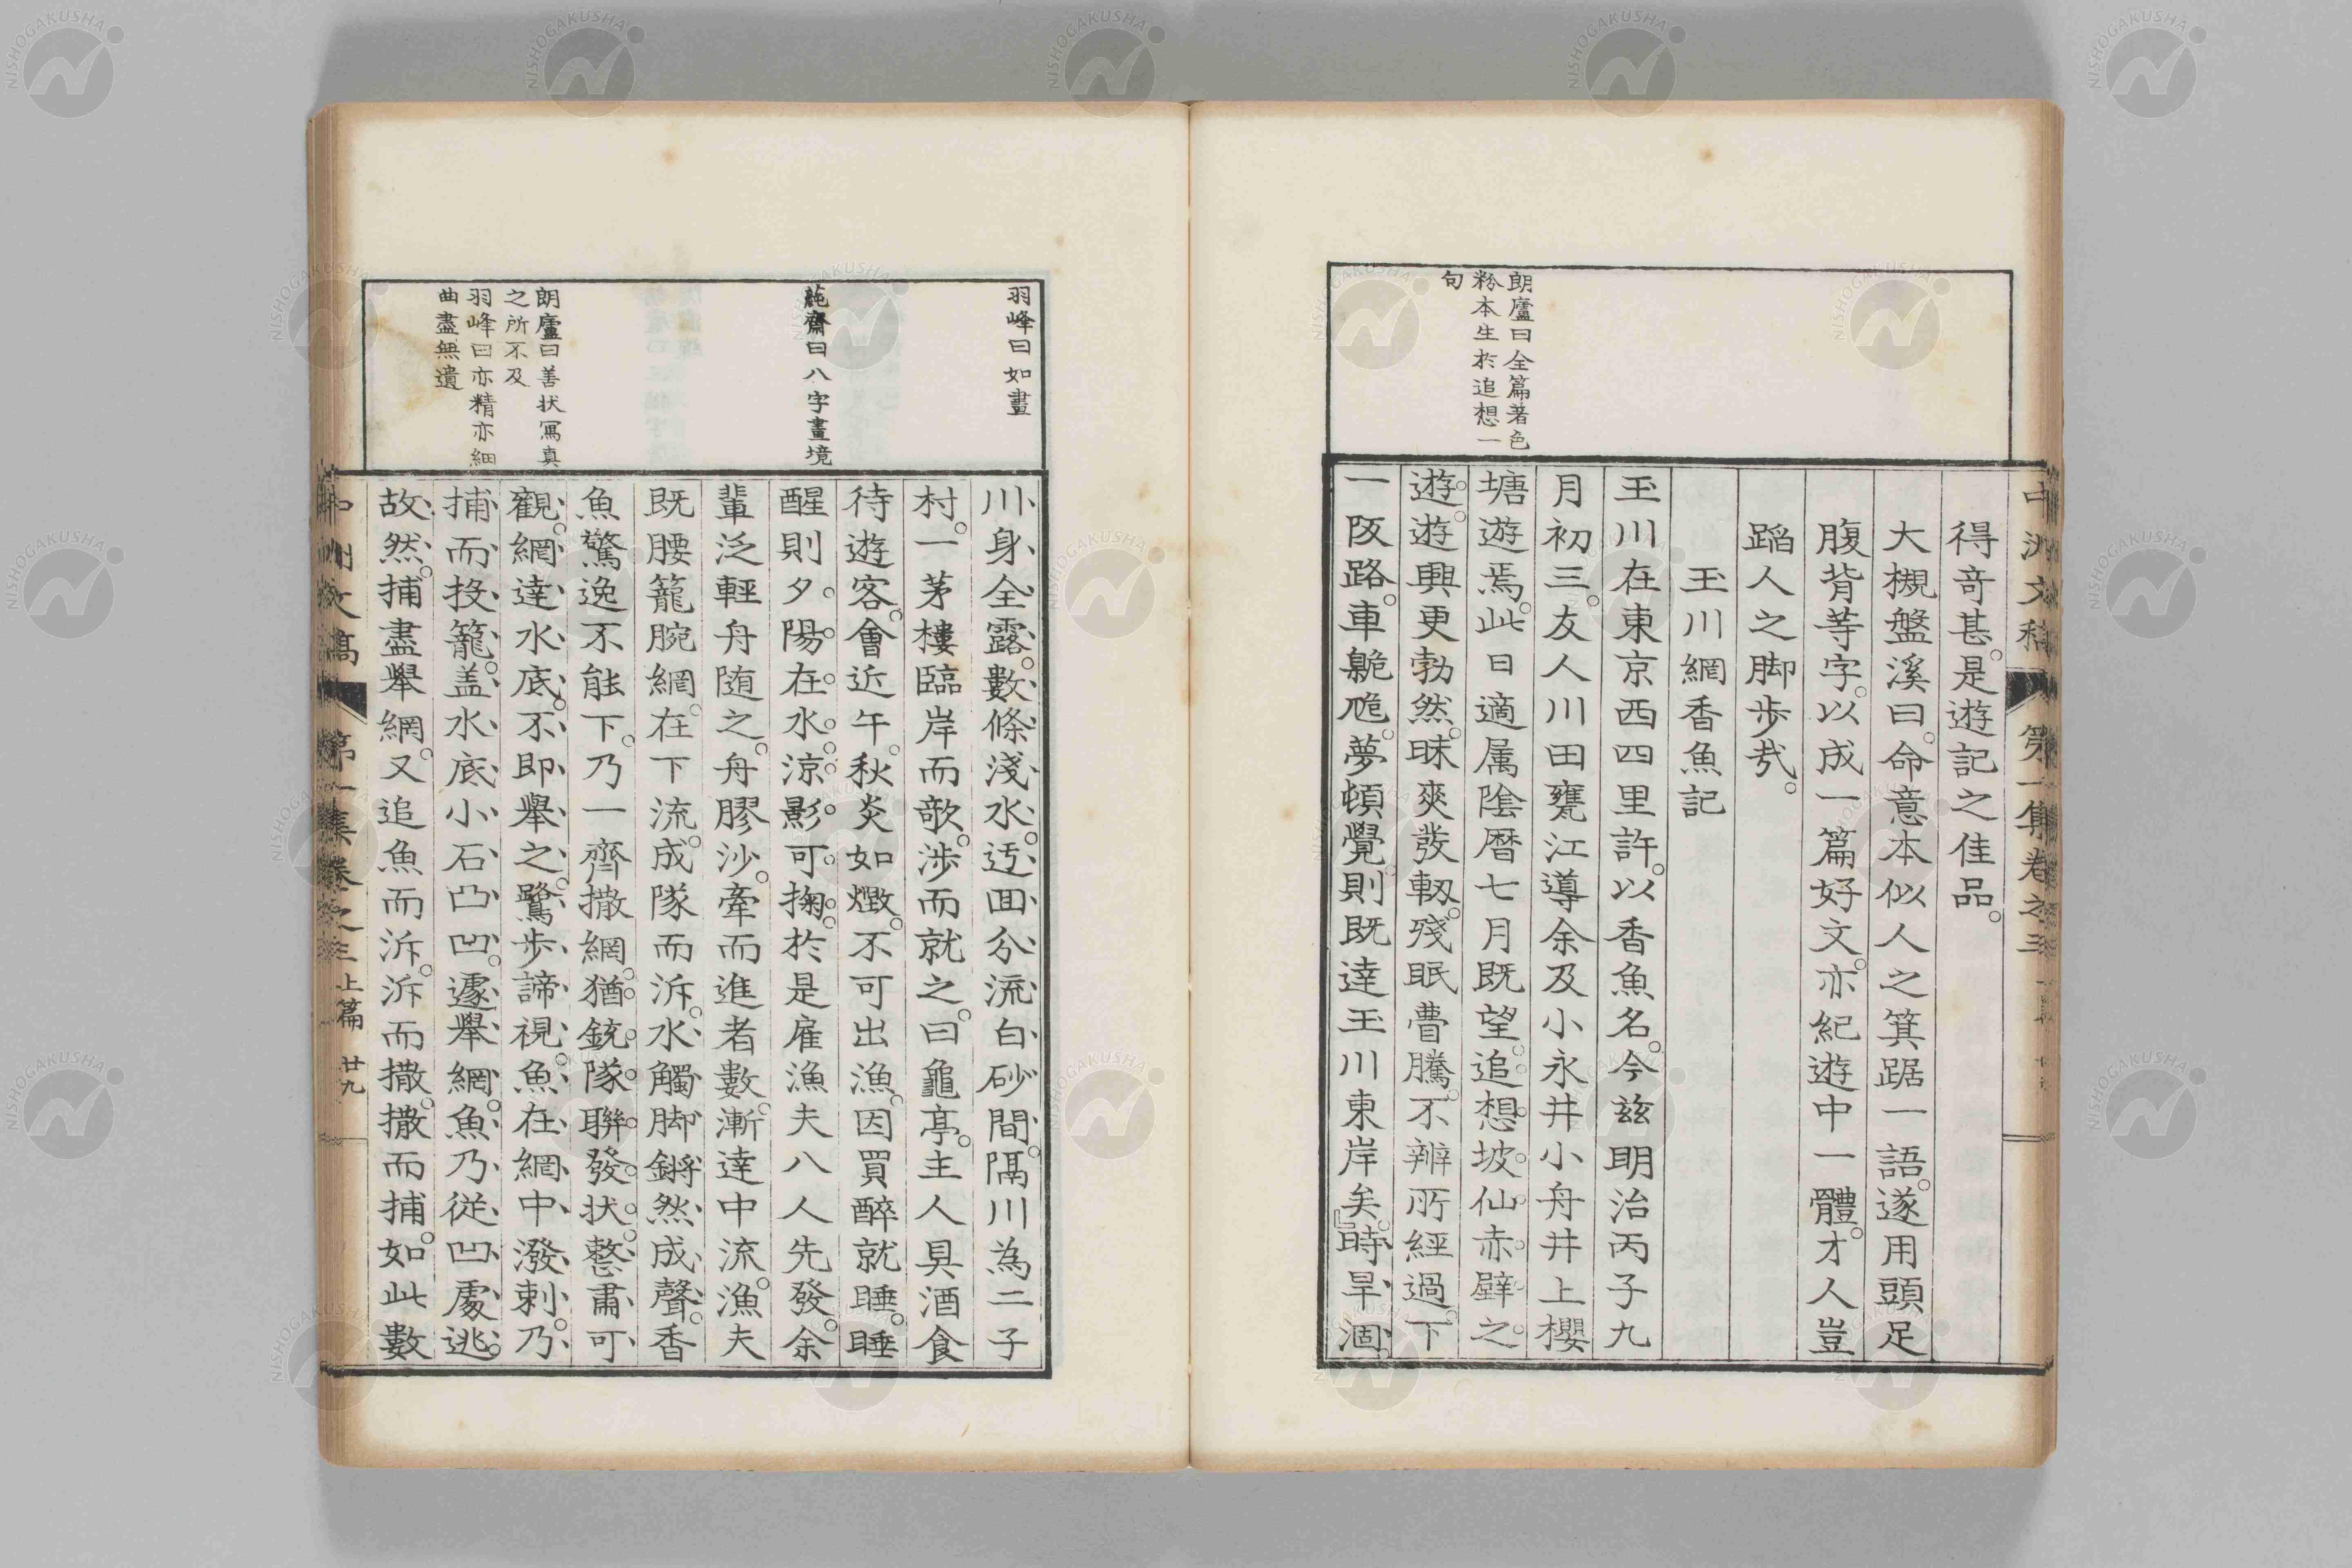 朗廬曰全篇著色
粉本生於追想一
句
中洲文稿 第一集卷之三
得奇甚。是遊記之佳品。
大槻盤溪曰。命意本似人之箕踞一語。遂用頭足
腹背等字。以成一篇好文。亦紀遊中一體。才人豈
蹈人之脚步㢤。
玉川網香魚記
玉川在東京西四里許。以香魚名。今茲明治丙子九
月初三。友人川田甕江導余及小永井小舟井上櫻
塘遊焉。此日適属陰曆七月既望。追想坡仙赤壁之
遊。遊興更勃然。昧爽發軔。殘眠瞢騰。不辨所經過。下
一阪路。車臲卼。夢頓覺。則既達玉川東岸矣。』時旱涸、
羽峰曰如畫
蓴齋曰八字畫境
朗廬曰善状冩真
之所不及
羽峰曰亦精亦細
曲盡無遺
川身全露。數條淺水。迂回分流白砂間。隔川為二子
村。一茅樓臨岸而欹。渉而就之。曰龜亭。主人具酒食
待遊客。會近午。秋炎如燬。不可出漁。因買醉就睡。睡
醒則夕陽在水。涼影可掬。於是雇漁夫八人先發。余
輩泛輕舟随之。舟膠沙。牽而進者數。漸達中流。漁夫
既腰籠腕網。在下流。成隊而泝。水觸脚鏘然成聲。香
魚驚逸不能下。乃一齊撒網。猶銃隊聯發状。整肅可
觀。網達水底。不即舉之。鷺步諦視。魚在網中潑剌。乃
捕而投籠。盖水底小石凸凹。遽舉網。魚乃從凹處逃。
故然。捕盡舉網。又追魚而泝。泝而撒。撒而捕。如此數
中洲文稿 第一集卷之三 上篇 廿九